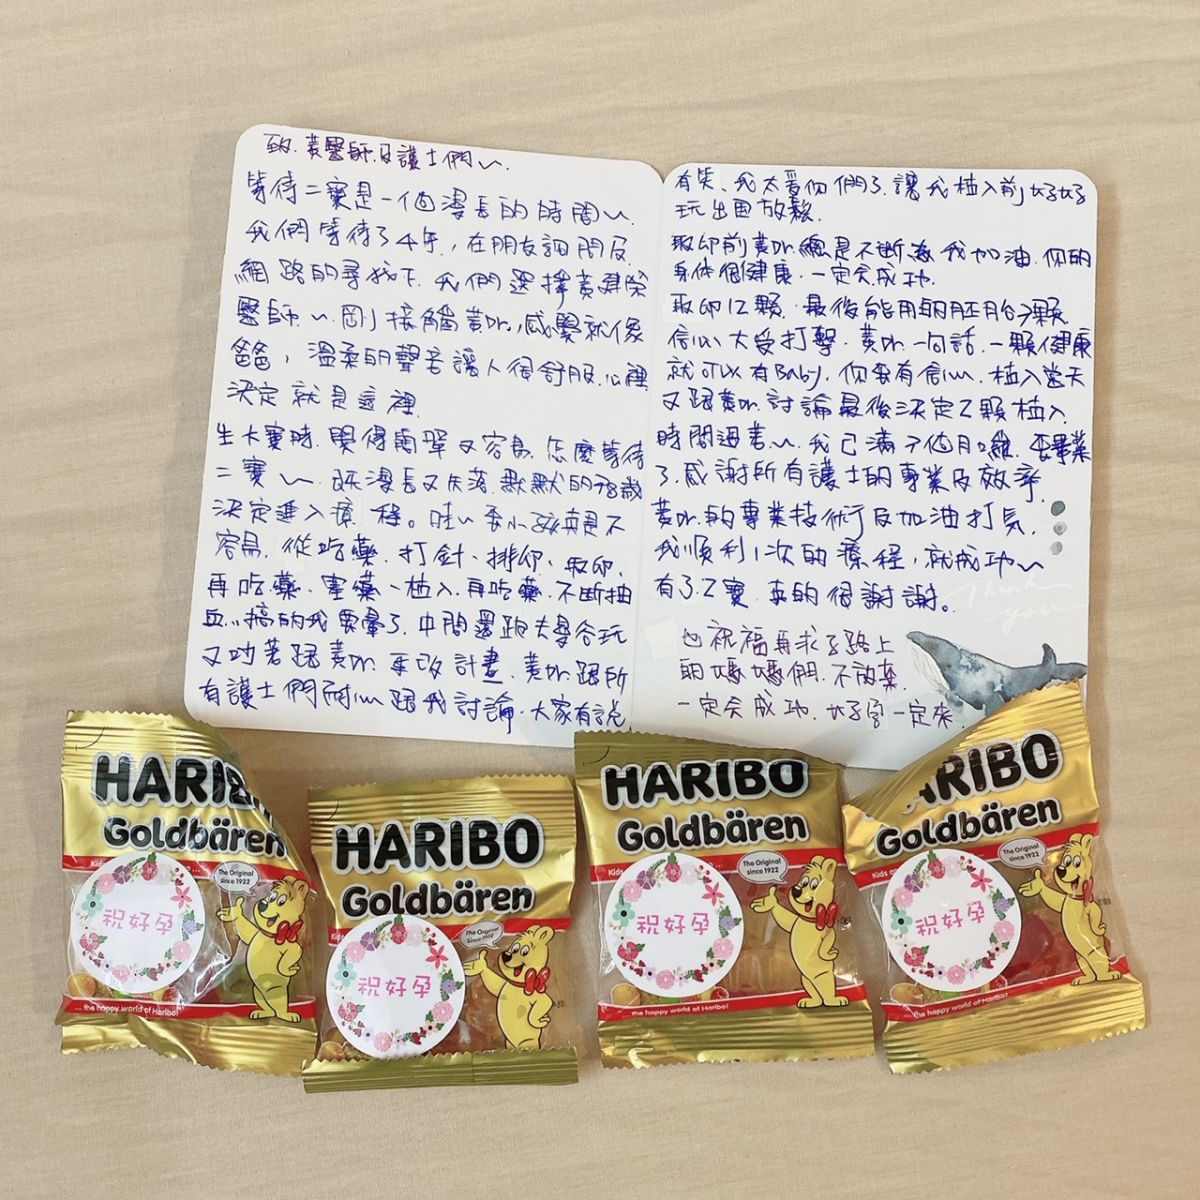 致.黃醫師.及護士們~.
等待二寶是一個漫長的時間~
我們等待了4年,在朋友詢問及
網路的尋找下.我們選擇黃建榮
醫師~.剛接觸黃Dr,感覺就像
爸爸,溫柔的聲音讓人很舒服.心裡
決定就是這裡.
生大寶時.覺得簡單又容易.怎麼等待
二寶~.既漫長又失落.默默的38歲
決定進入療程。哇~要小孩真是不
容易.從吃藥.打針、排卵、取卵.
再吃藥.塞藥-植入.再吃藥.不斷抽
血..搞的我要暈了.中間還跟大學合玩
又吵著跟黃Dr.更改計畫.黃Dr.跟所
有護士們耐心跟我討論.大家有說
有笑、我太愛你們了.讓我植入前好好
玩出國放鬆.
取卵前黃Dr.總是不斷為我加油.你的
身体很健康.一定会成功.
取卵12顆.最後能用的胚胎3顆
信心大受打擊.黃Dr.一句話.一顆健康
就可以有Baby.你要有信心.植入當天
又跟黃Dr.討論最後決定2顆植入.
時間過著~.我已滿7個月囉.要畢業
了.感謝所有護士的專業及效率.
黃Dr.的專業技術及加油打氣.
我順利1次的療程,就成功~
有了2寶.真的很謝謝。
Thank
you
也祝福再求子路上
的媽媽們.不放棄.
一定会成功.好孕一定來.
HARIBO
Goldbären
The Original
since 1922
祝好孕
... the happy world of Haribo!
HARIBO
Goldbären
The Original
since 1922
祝好孕
HARIBO
Goldbären
The Original
since 1922
祝好孕
... the happy world of Haribo!
ARIBO
Goldbären
The Original
since 1922
祝好孕
... the happy world of Haribo!